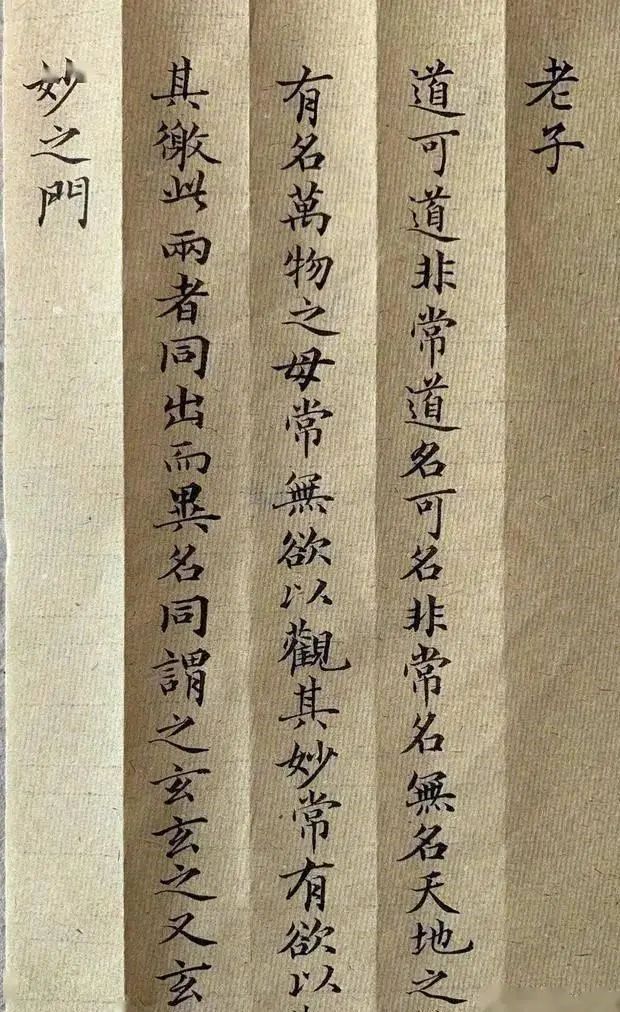 老子
道可道非常道名可名非常名無名天地之
有名萬物之母常無欲以觀其妙常有欲以
其徼此兩者同出而異名同謂之玄玄之又玄
妙之門